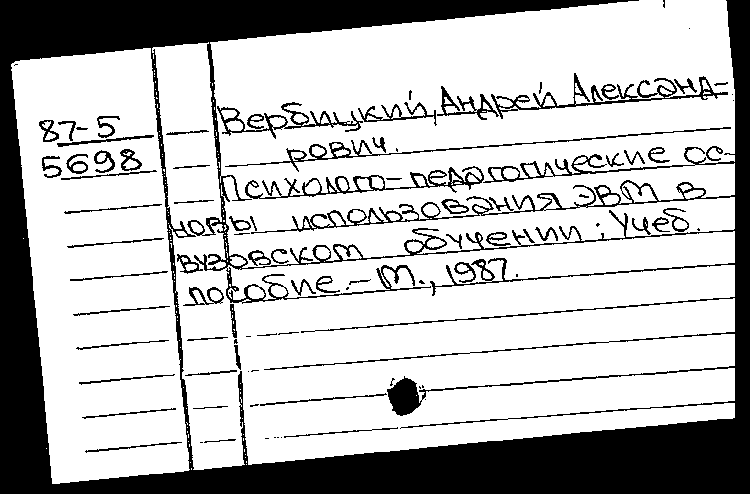 87-5
5698
Вербицкий, Андрей Александ-
рович.
Психолого-педагогические ос-
новы использования ЭВМ в
вузовском обучении: Учеб.
пособие. - М., 1987.